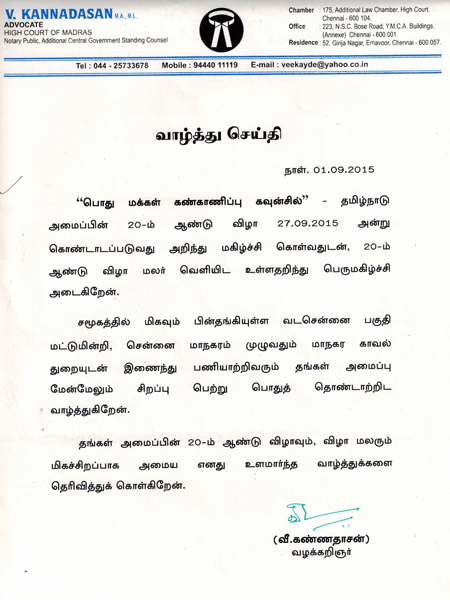 V. KANNADASAN M.A., M.L.
ADVOCATE
HIGH COURT OF MADRAS
Notary Public, Additional Central Government Standing Counsel
Chamber : 175, Additional Law Chamber, High Court.
Chennai - 600 104.
Office : 223, N.S.C. Bose Road, Y.M.C.A. Buildings.
(Annexe) Chennai - 600 001.
Residence : 52, Girija Nagar, Ernavoor, Chennai - 600 057.
Tel : 044 - 25733678 Mobile : 94440 11119 E-mail : veekayde@yahoo.co.in
வாழ்த்து செய்தி
நாள். 01.09.2015
“பொது மக்கள் கண்காணிப்பு கவுன்சில்” - தமிழ்நாடு
அமைப்பின் 20-ம் ஆண்டு விழா 27.09.2015 அன்று
கொண்டாடப்படுவது அறிந்து மகிழ்ச்சி கொள்வதுடன், 20-ம்
ஆண்டு விழா மலர் வெளியிட உள்ளதறிந்து பெருமகிழ்ச்சி
அடைகிறேன்.
சமூகத்தில் மிகவும் பின்தங்கியுள்ள வடசென்னை பகுதி
மட்டுமின்றி, சென்னை மாநகரம் முழுவதும் மாநகர காவல்
துறையுடன் இணைந்து பணியாற்றிவரும் தங்கள் அமைப்பு
மேன்மேலும் சிறப்பு பெற்று பொதுத் தொண்டாற்றிட
வாழ்த்துகிறேன்.
தங்கள் அமைப்பின் 20-ம் ஆண்டு விழாவும், விழா மலரும்
மிகச்சிறப்பாக அமைய எனது உளமார்ந்த வாழ்த்துக்களை
தெரிவித்துக் கொள்கிறேன்.
(வீ.கண்ணதாசன்)
வழக்கறிஞர்